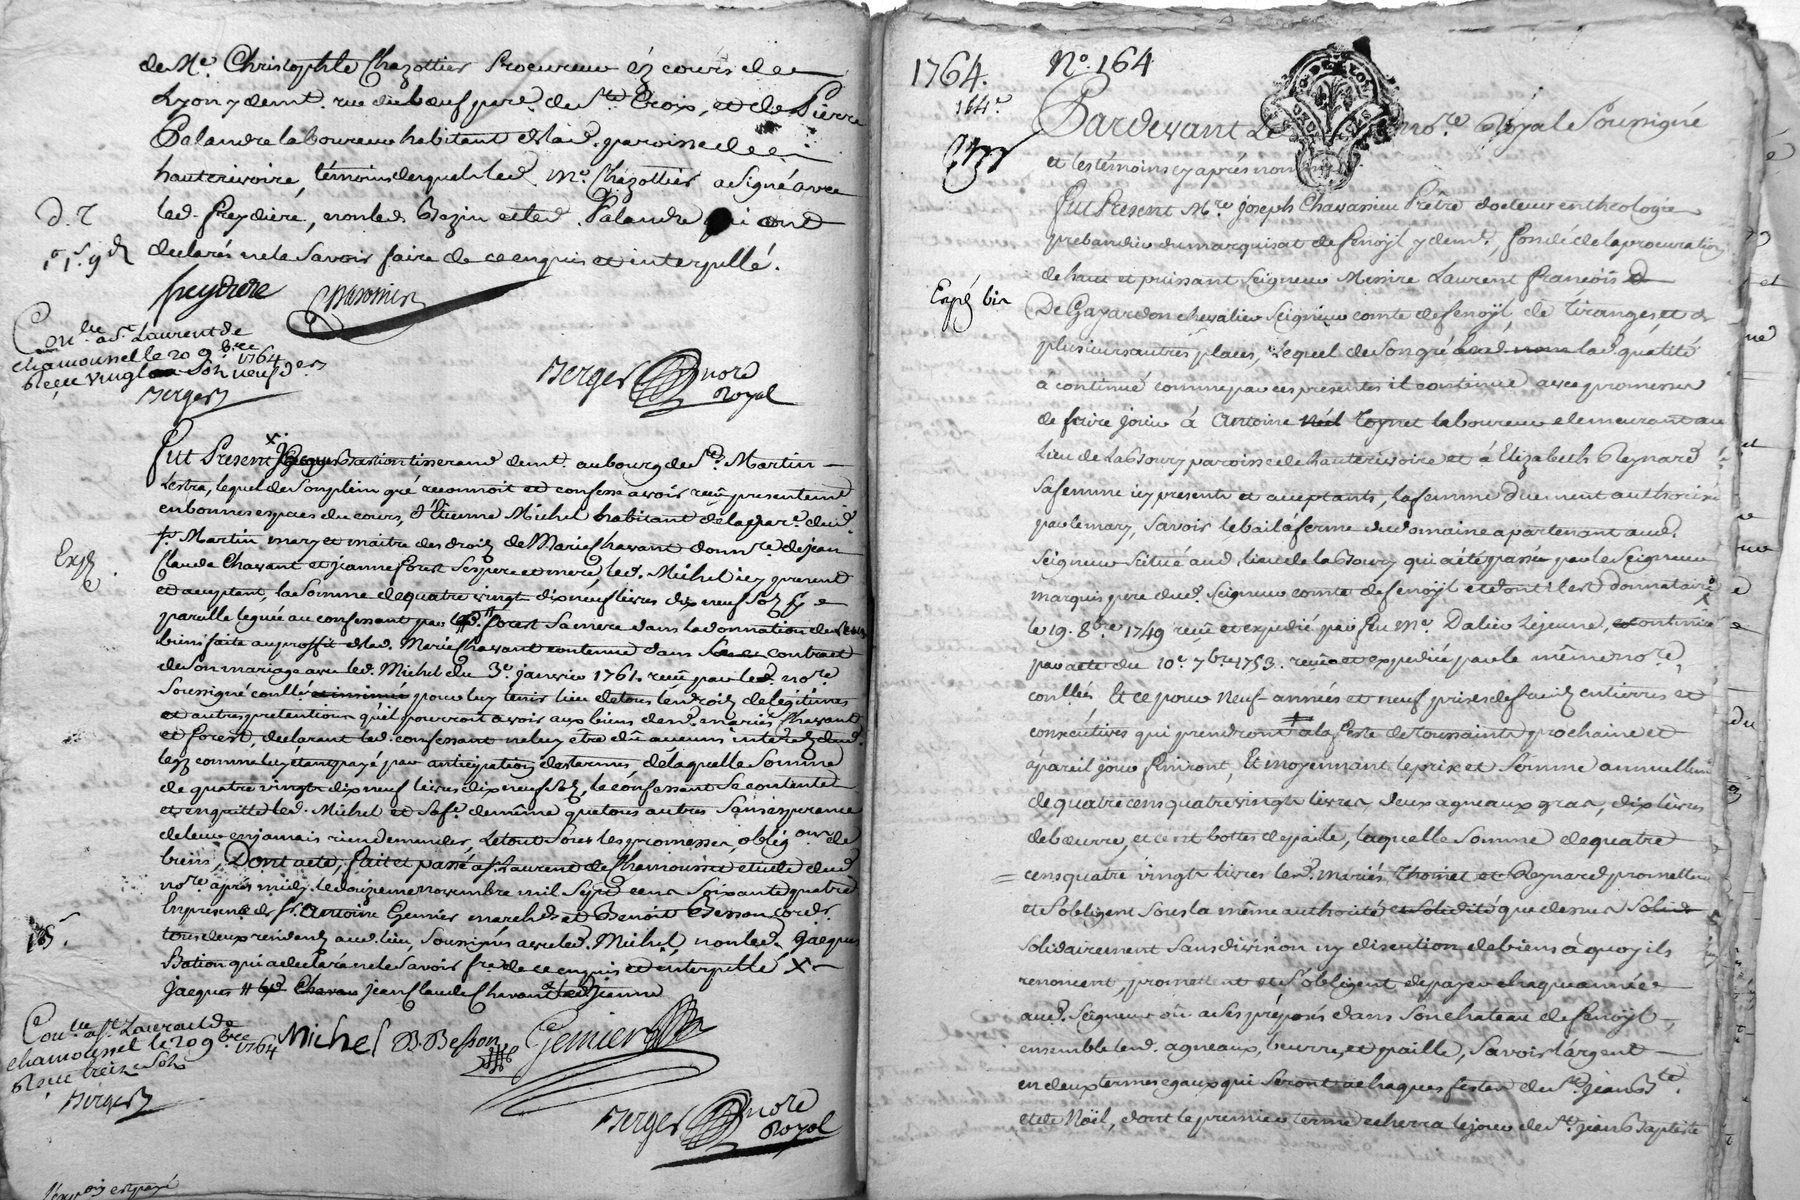 de Me. Christophle Chazottier Procureur éz cours de
Lyon y demt. rue du boeuf parr. de Ste Croix, et de Pierre
Palandre laboureur habitant de lad. paroisse de
hauterivoire, témoins lequel led. Me. Chazottier a signé avec
led. freydiere, non led. Bazin et led. Palandre qui ont
declarés ne le savoir faire de ce enquis et interpellé.
freydiere
Con.lle a St Laurent de
chamousset le 20 9bre 1764
Reçu vingt Sols neuf ders
Berger
Berger nore
Royal
fut Present x Bastion tisserand demt. au bourg de St. Martin
Lestra, lequel de son plein gré reconnoit et confesse avoir reçû presentemt
en bonnes espèces du cours, d'Etienne Michel habitant de la parr. dud.
St. Martin mary et maitre des droits de Marie Chavant donnre de jean
Claude Chavant et jeanne forest ses pere et mere, led. Michel icy present
et acceptant, la Somme de quatre vingt dix neuf livres dix neuf Sols
pareille leguée au confessant par lad. forest Sa mere dans la donnation de Ses
biens faite au proffit de lad. Marie Chavant contenue dans contract
de Son mariage avec led. Michel du 3e. janvier 1761. reçu par led. nore.
Soussigné conllé pour luy tenir lieu de tous les droits de légitimes
et autres pretentions qu'il pourroit avoir aux biens desd. mariés Chavant
et forest, declarant led. confessant ne luy être dû aucuns interets dud.
legz comme luy étant payé par anticipation des termes de laquelle Somme
de quatre vingt dix neuf livres dix neuf Sols, le confessant Se contente
et en quitte led. Michel et Saf. de même que tous autres Sans esperance
de leur en jamais rien demander, Le tout Sous les promesses, oblig.ons de
biens, Dont acte, fait et passé a St. Laurent de Chamousset etude dud.
nore après midy le douzieme novembre mil Sept cens Soixante quatre
En presence de Sr. Antoine Genier marchd. et Benoit Besson cordr.
tous deux residents aud. lieu, Soussignés avec led. Michel, non led. jacques
Bation qui a declaré ne le Savoir fre. de ce enquis et interpellé x
jacques jean Claude Chavant et jeanne
Con.lle a St Laurent de
chamousset le 20 9bre 1764
Reçu treize Sols
Berger
Michel B Besson Genier
Berger nore
Royal
1764. No. 164
164e
Pardevant Le nore. Royal Soussigné
et les témoins cy après nommés
Expé bis
fut Present Mre joseph Chavassieu Prêtre docteur en theologie
prebandier du marquisat de fenoyl y demt., fondé de la procuration
de haut et puissant Seigneur Messire Laurent françois
De Gayardon chevalier Seigneur comte de fenoyl, de Tiranges, et de
plusieurs autres places, Lequel de Son gré lad. qualité
à continué comme par ces presentes il continue avec promesses
de faire jouir à Antoine Toynet laboureur demeurant au
Lieu de La Boury paroisse de hauterivoire et à Elizabeth Reynard
Sa femme icy presents et acceptants, la femme duement authorisée
par le mary, Savoir le bail à ferme du domaine apartenant aud.
Seigneur Situé aud. lieu de la Boury qui a été passé par le Seigneur
marquis pere dud. Seigneur comte de fenoyl et dont il est donnataire
le 19. 8bre 1749 reçu et expedié par feu Me. Dalier Lejeune, continué
par acte du 10e. 7bre 1753. reçu et expedié par le même nore,
conllés, Et ce pour Neuf années et neuf prises de fruits entieres et
consécutives qui prendront a la feste de toussaints prochaine et
à pareil jour finiront, Et moyennant le prix et Somme annuellemt
de quatre cens quatre vingt livres, deux agneaux gras, dix livres
de boeurre, et cent bottes de paile, laquelle Somme de quatre
cens quatre vingt livres led. mariés Thoinet et Reynard promettent
et S'obligent Sous la même authorité que dessus
Solidairement Sans division ny discution de biens à quoy ils
renoncent, promettent et S'obligent de payer chaque année
aud. Seigneur où a Ses préposés dans Son chateau de fenoyl,
ensemble led. agneaux, beurre, et paille, Savoir l'argent
en deux termes egaux qui Seront a chaques festes de St. jean Bte.
et de Noël, dont le premier terme echerra le jour de St. jean Baptiste